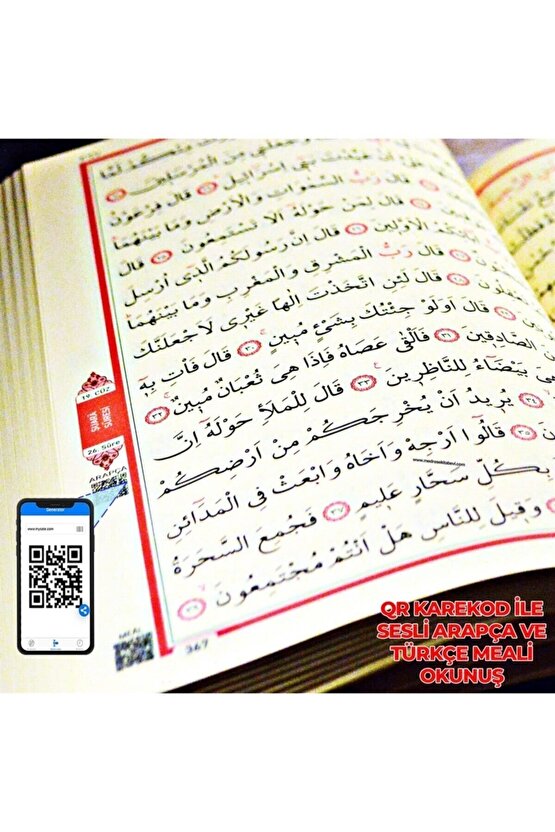 وَجَعَلَنٖي مِنَ الْمُرْسَلٖينَ
اَنْ عَبَّدْتَ بَنٖٓي اِسْرَٓائٖلَ ﴿٢٢﴾ قَالَ فِرْعَوْنُ
قَالَ رَبُّ السَّمٰوَاتِ وَالْاَرْضِ وَمَا بَيْنَهُمَا
قَالَ لِمَنْ حَوْلَهُٓ اَلَا تَسْتَمِعُونَ ﴿٢٥﴾ قَالَ
الْاَوَّلٖينَ ﴿٢٦﴾ قَالَ اِنَّ رَسُولَكُمُ الَّذٖٓي اُرْسِلَ
قَالَ رَبُّ الْمَشْرِقِ وَالْمَغْرِبِ وَمَا بَيْنَهُمَا
قَالَ لَئِنِ اتَّخَذْتَ اِلٰهًا غَيْرٖي لَاَجْعَلَنَّكَ
قَالَ اَوَلَوْ جِئْتُكَ بِشَيْءٍ مُبٖينٍ ﴿٣٠﴾ قَالَ فَأْتِ بِهٖٓ
الصَّادِقٖينَ ﴿٣١﴾ فَاَلْقٰى عَصَاهُ فَاِذَا هِيَ ثُعْبَانٌ مُبٖينٌ ﴿٣٢﴾
هِيَ بَيْضَٓاءُ لِلنَّاظِرٖينَ ﴿٣٣﴾ قَالَ لِلْمَلَأِ حَوْلَهُٓ اِنَّ
يُرٖيدُ اَنْ يُخْرِجَكُمْ مِنْ اَرْضِكُمْ
قَالُٓوا اَرْجِهْ وَاَخَاهُ وَابْعَثْ فِي الْمَدَٓائِنِ
بِكُلِّ سَحَّارٍ عَلٖيمٍ ﴿٣٧﴾ فَجُمِعَ السَّحَرَةُ
وَقٖيلَ لِلنَّاسِ هَلْ اَنْتُمْ مُجْتَمِعُونَ ﴿٣٩﴾
19. CÜZ
ŞUARA
SURESİ
26. Sûre
ARAPÇA
MEAL
367
Generator
QR KAREKOD İLE
SESLİ ARAPÇA VE
TÜRKÇE MEALİ
OKUNUŞ